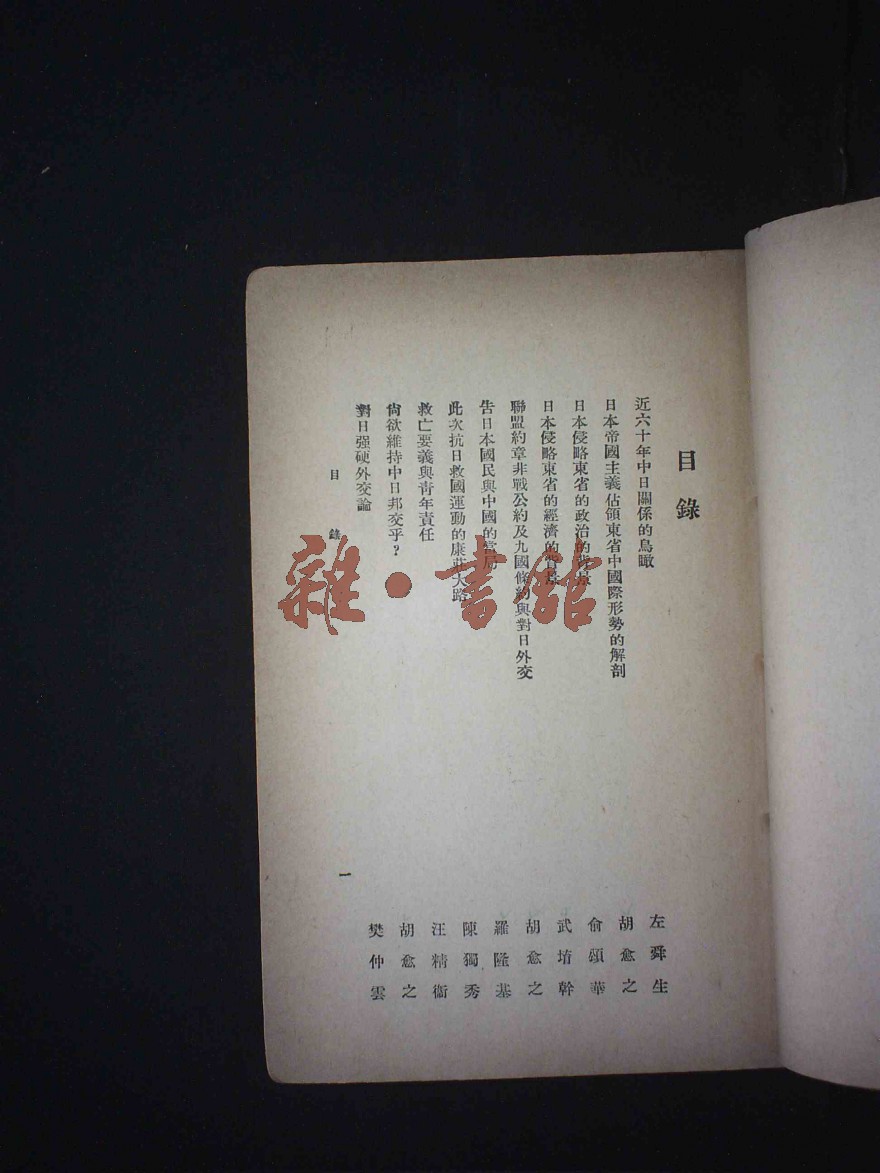 目錄
近六十年中日關係的鳥瞰 左舜生
日本帝國主義佔領東省中國際形勢的解剖 胡愈之
日本侵略東省的政治的背景 俞頌華
日本侵略東省的經濟的背景 武堉幹
聯盟約章非戰公約及九國條約與對日外交 胡愈之
告日本國民與中國的當局 羅隆基
此次抗日救國運動的康莊大路 陳獨秀
救亡要義與青年責任 汪精衞
尙欲維持中日邦交乎？ 胡愈之
對日强硬外交論 樊仲雲
目錄
一
雜·書館